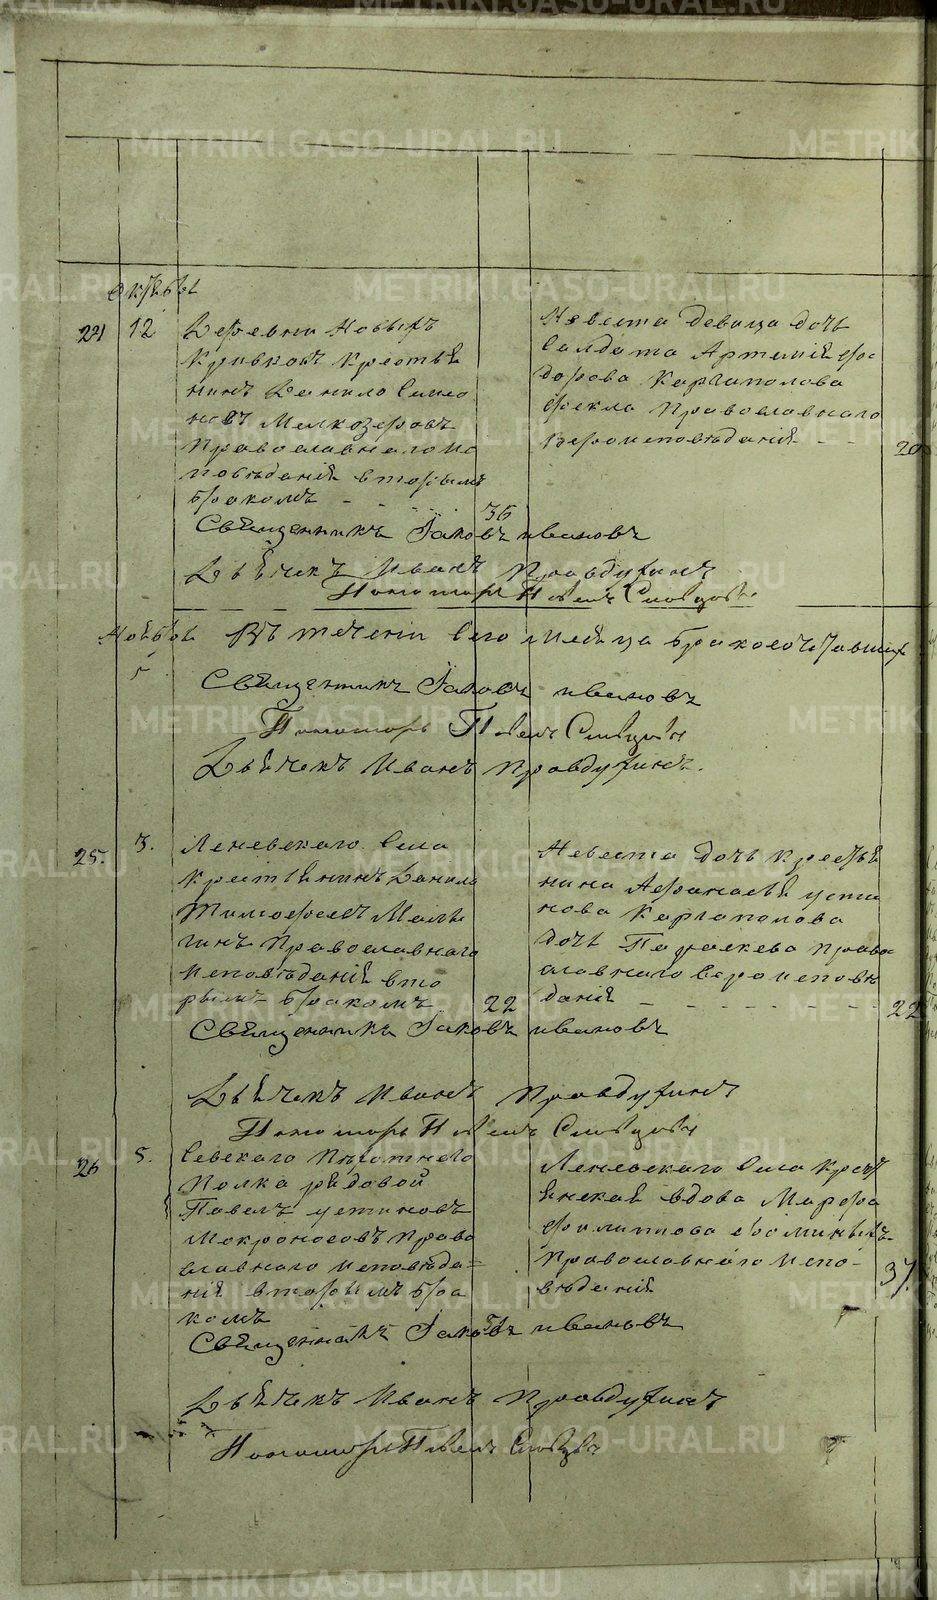 METRIKI.GASO-URAL.RU
Октября
24 12 Деревни Новыхъ
Кривковъ крестья
нинъ Данило Симо
новъ Мелкозеровъ
Православнаго ис
поведания вторымъ
бракомъ 36
Невеста девица дочь
Салдата Артемия Фе
дорова Каргаполова
Фекла Православнаго
вероисповедания 20
Священникъ Иаковъ Ивановъ
Дьячекъ Иванъ Правдухинъ
Пономарь Павелъ Словцовъ
Ноября Въ течении сего месяца бракосочетавших
Священникъ Иаковъ Ивановъ
Пономарь Павелъ Словцовъ
Дьячекъ Иванъ Правдухинъ.
25. 3. Леневскаго Села
крестьянинъ Данило
Тимофеевъ
Православнаго
исповедания вто
рымъ бракомъ 22
Невеста дочь крестья
нина Афанасья Усти
нова Каргаполова
дочь Параскева право
славнаго вероисповѣ
дания 22
Священникъ Иаковъ Ивановъ
Дьячекъ Иванъ Правдухинъ
Пономарь Павелъ Словцовъ
26 5. Севскаго Пехотнаго
Полка рядовой
Павелъ Устиновъ
Мокроносовъ право
славнаго исповеда=
ния вторымъ бра
комъ
Леневскаго Села крест
янская вдова Марфа
Филиппова
православнаго испо-
ведания 37
Священникъ Иаковъ Ивановъ
Дьячекъ Иванъ Правдухинъ
Пономарь Павелъ Словцовъ